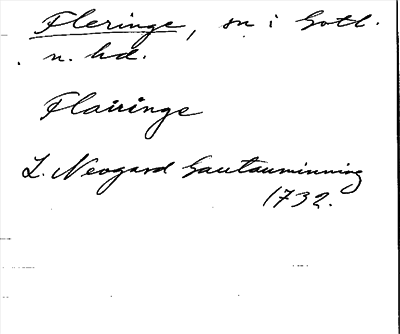 Fleringe, sn i Gotl.
n. hd.
Flairinge
L. Neogard Gautauminning
1732.